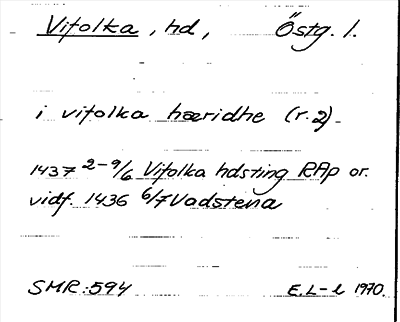 Vifolka, hd, Östg. l.
i vifolka hæridhe (r. 2)
1437 2-9/6 Vifolka hdsting RAp or.
vidf. 1436 6/7 Vadstena
SMR: 594 E. L-l 1970.